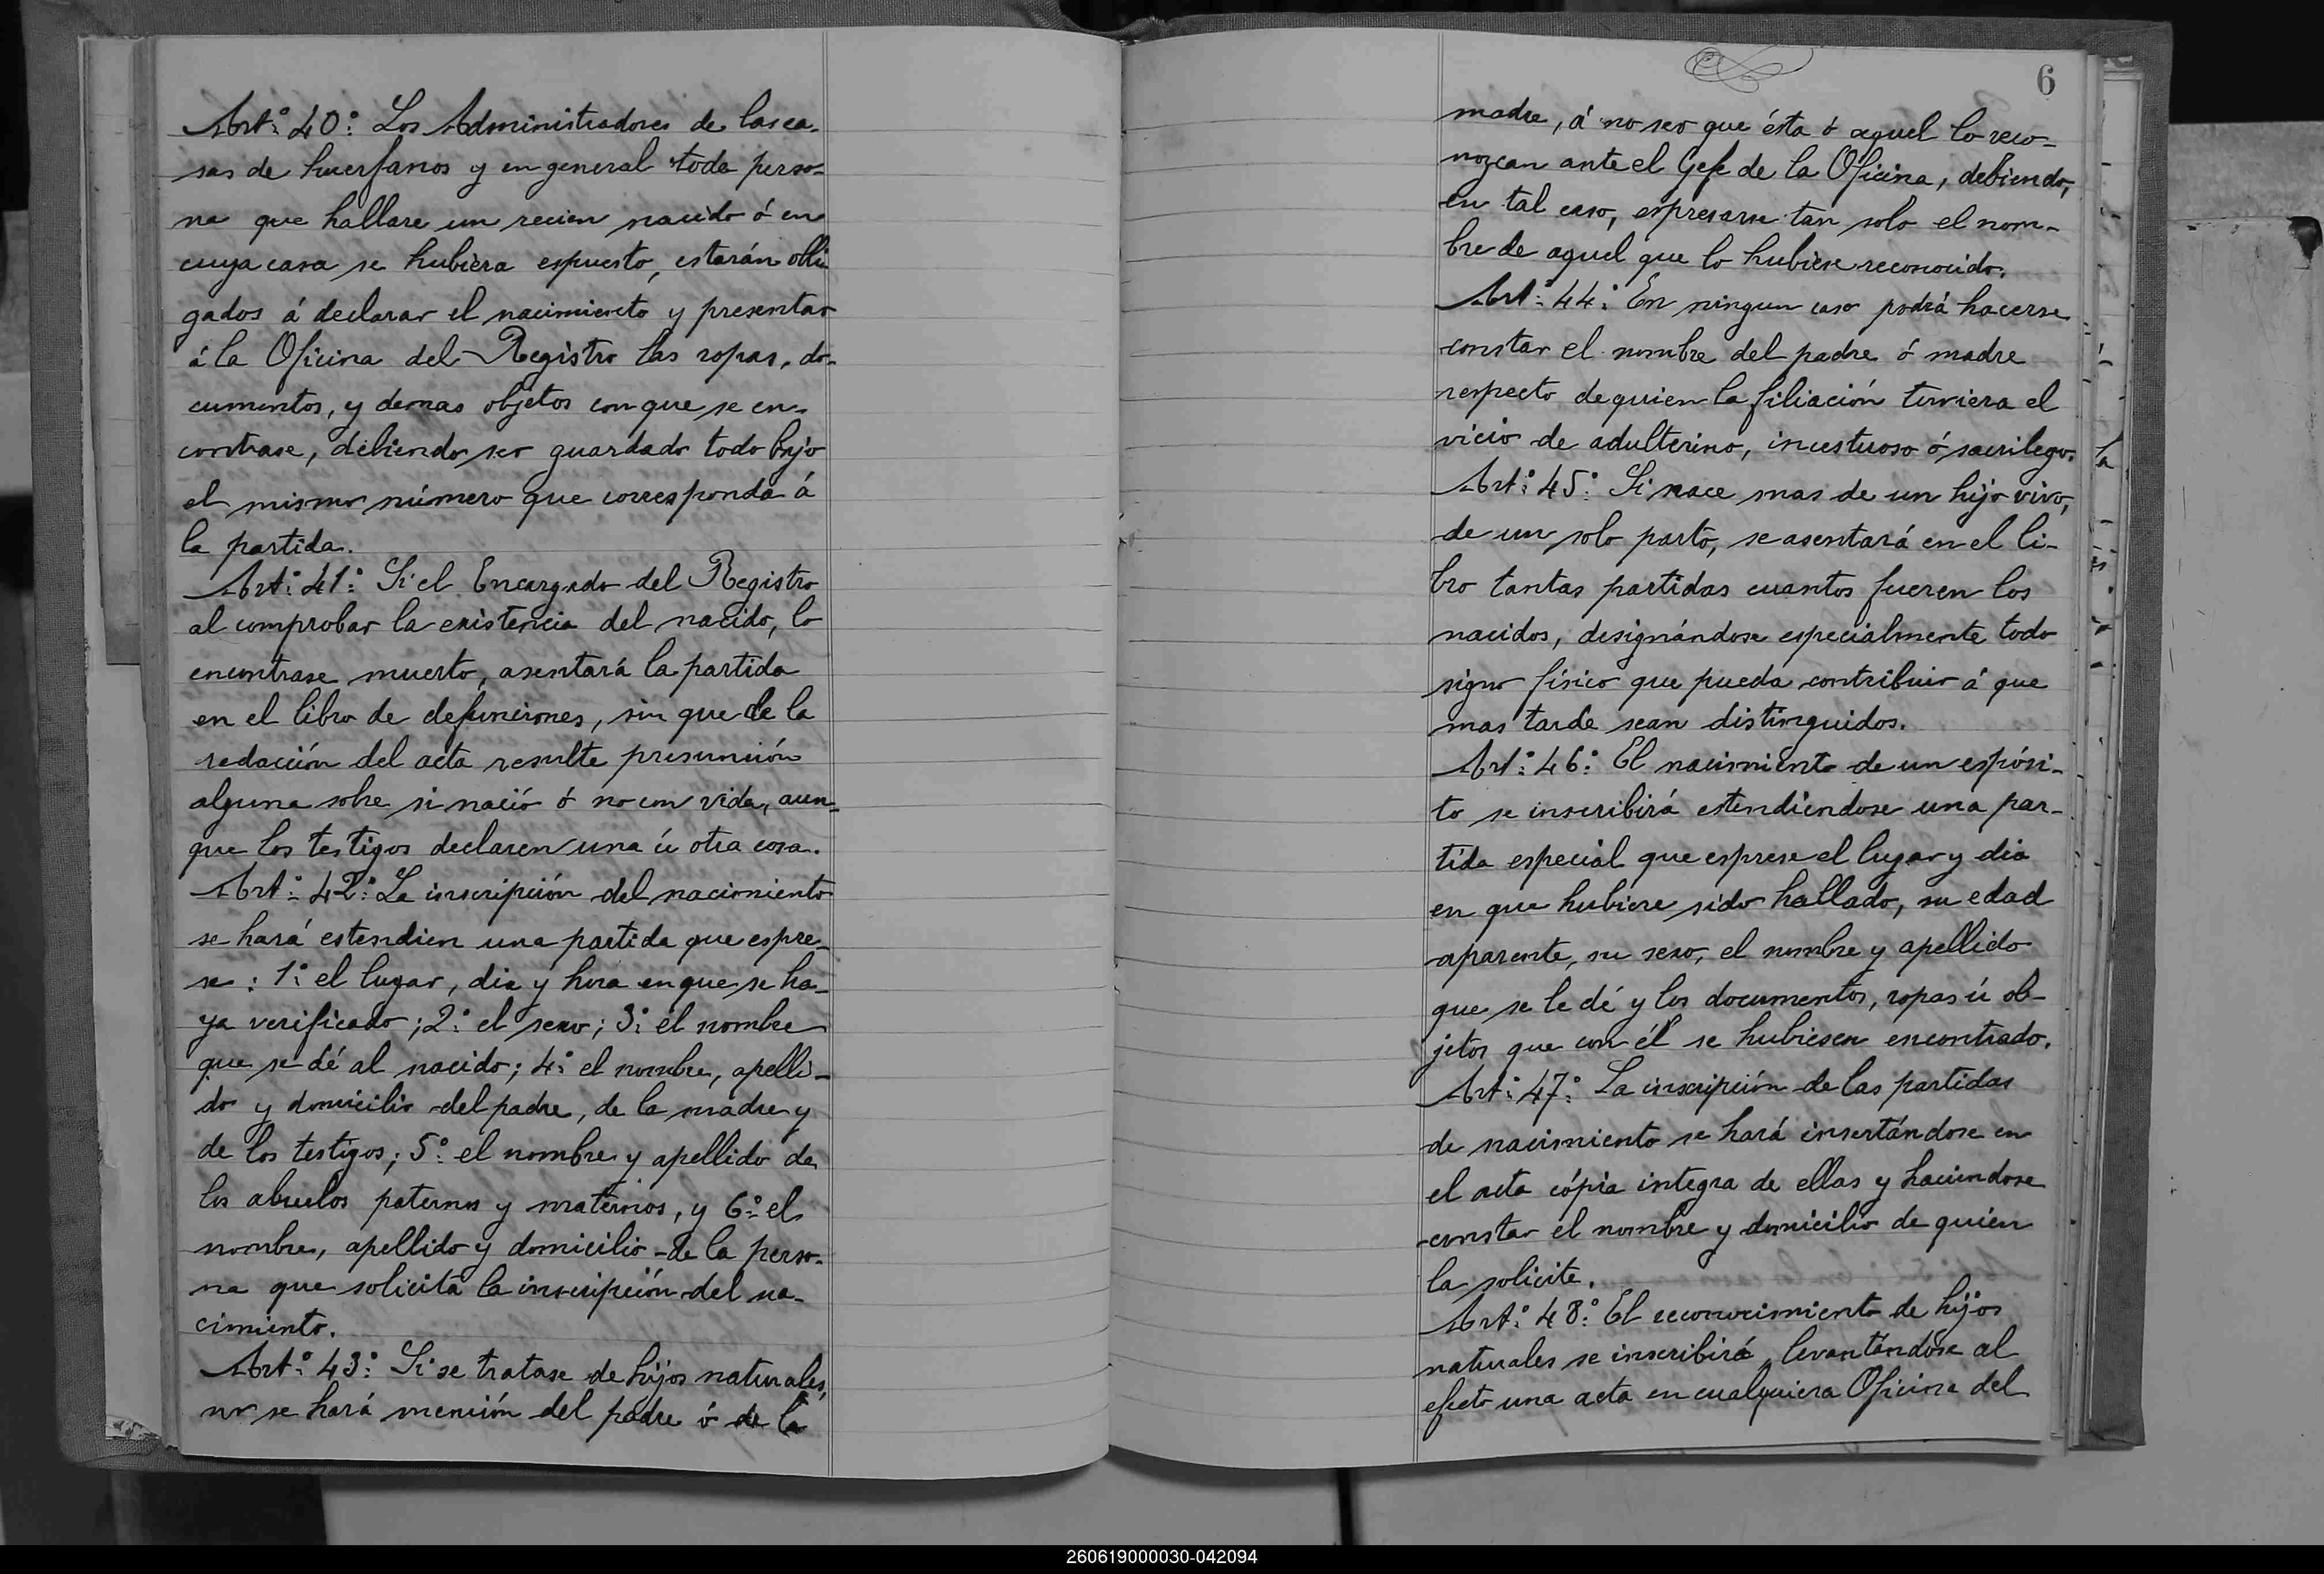 Art.º 40.º Los Administradores de las ca-
sas de huerfanos y en general toda perso-
na que hallare un recien nacido ó en
cuya casa se hubiera espuesto, estarán obli
gados á declarar el nacimiento y presentar
á la Oficina del Registro las ropas, do-
cumentos, y demas objetos con que se en-
contrase, debiendo ser guardado todo bajo
el mismo número que corresponda á
la partida.
Art.º 41.º Si el Encargado del Registro
al comprobar la existencia del nacido, lo
encontrase muerto, asentará la partida
en el libro de defunciones, sin que de la
redacción del acta resulte presunción
alguna sobre si nació ó no con vida, aun-
que los testigos declaren una ú otra cosa.
Art.º 42.º La inscripción del nacimiento
se hará estendien una partida que espre-
se: 1.º el lugar, dia y hora en que se ha-
ya verificado; 2.º el sexo; 3.º el nombre
que se dé al nacido; 4.º el nombre, apelli-
do y domicilio del padre, de la madre y
de los testigos; 5.º el nombre y apellido de
los abuelos paternos y maternos, y 6.º el
nombre, apellido y domicilio de la perso-
na que solicita la inscripción del na-
cimiento.
Art.º 43.º Si se tratase de hijos naturales,
no se hará mención del padre ó de la
6
madre, á no ser que ésta ó aquel lo reco-
nozcan ante el Gefe de la Oficina, debiendo,
en tal caso, espresarse tan solo el nom-
bre de aquel que lo hubiese reconocido.
Art.º 44.º En ningun caso podrá hacerse
constar el nombre del padre ó madre
respecto de quien la filiación tuviera el
vicio de adulterino, incestuoso ó sacrilego.
Art.º 45.º Si nace mas de un hijo vivo,
de un solo parto, se asentará en el li-
bro tantas partidas cuantos fueren los
nacidos, designándose especialmente todo
signo físico que pueda contribuir á que
mas tarde sean distinguidos.
Art.º 46.º El nacimiento de un espósi-
to se inscribirá estendiendose una par-
tida especial que esprese el lugar y dia
en que hubiere sido hallado, su edad
aparente, su sexo, el nombre y apellido
que se le dé y los documentos, ropas ú ob-
jetos que con él se hubiesen encontrado.
Art.º 47.º La inscripción de las partidas
de nacimiento se hará insertándose en
el acta cópia integra de ellas y haciendose
constar el nombre y domicilio de quien
la solicite.
Art.º 48.º El reconocimiento de hijos
naturales se inscribirá, levantándose al
efecto una acta en cualquiera Oficina del
260619000030-042094